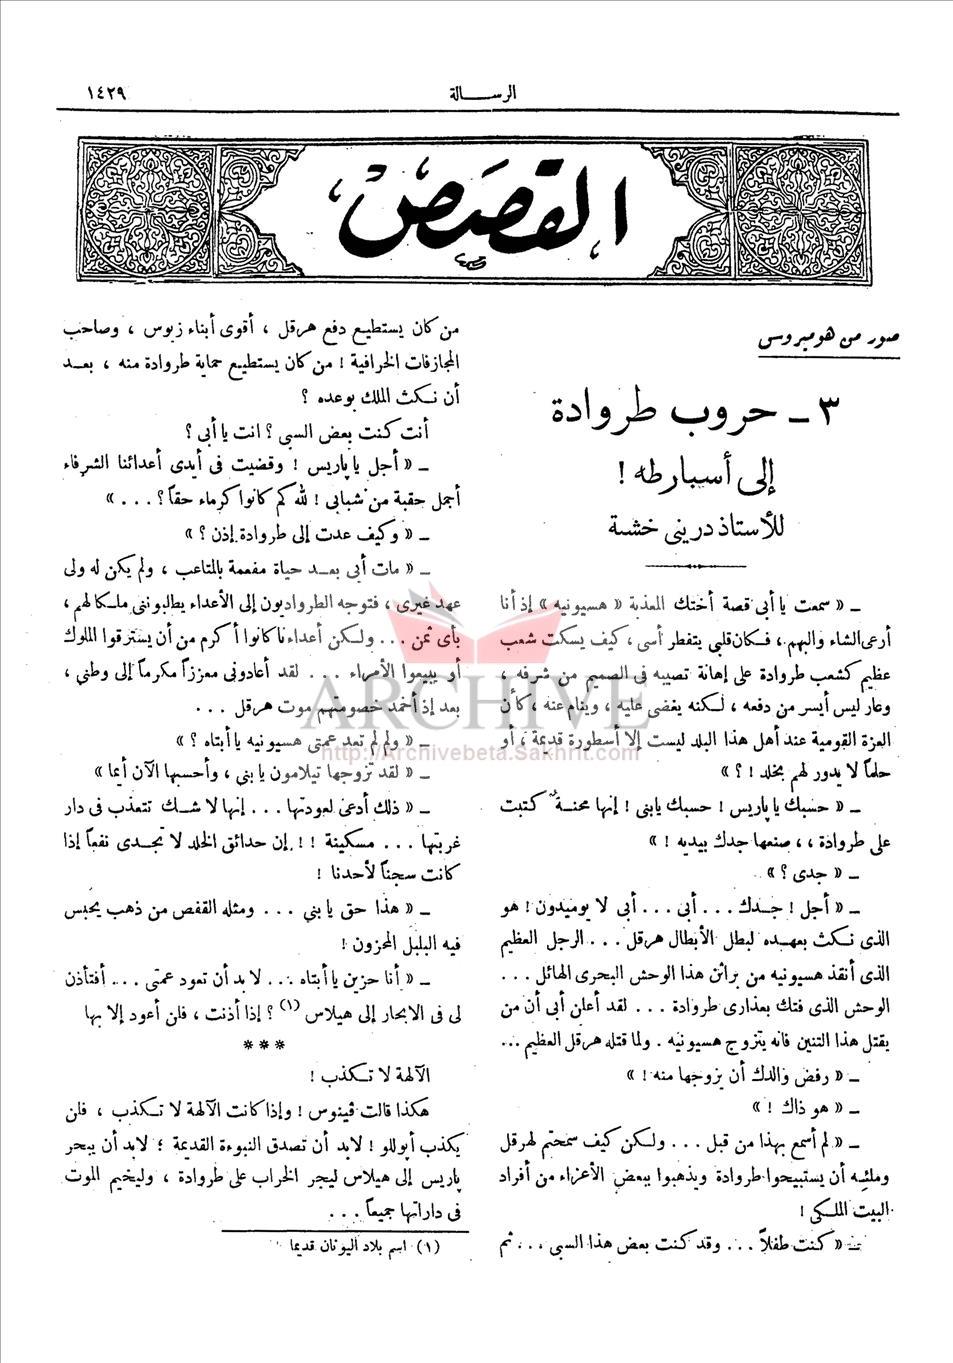 ١٤٢٩
الرسالة
القصص
صور من هوميروس
٣ ــ حروب طروادة
إلى أسبارطه !
للأستاذ دريني خشبة
ــ « سمعت يا أبى قصة أختك المعذبة « هسيونيه » إذ أنا
أرعى الشاء والبهم ، فكان قلبي يتفطر أسى ، كيف يسكت شعب
عظيم كشعب طروادة على إهانة تصيبه فى الصميم من شرفه ،
وعار ليس أيسر من دفعه ، لكنه يغضى عليه ، وينام عنه ، كأن
العزة القومية عند أهل هذا البلد ليست إلا أسطورة قديمة ، أو
حلماً لا يدور لهم بخلد ! ؟ »
ــ « حسبك يا پاريس ! حسبك يابنى ! إنها محنة كتبت
على طروادة ، ، صنعها جدك بيديه ! »
ــ « جدى ؟ »
ــ « أجل ! جدك . . . أبى . . . أبى لا يوميدون ! هو
الذى نكث بعهده لبطل الأبطال هرقل . . . الرجل العظيم
الذى أنقذ هسيونيه من براثن هذا الوحش البحرى الهائل . . .
الوحش الذى فتك بعذارى طروادة . . . لقد أعلن أبى أن من
يقتل هذا التنين فانه يتزوج هسيونيه . ولما قتله هرقل العظيم ...
ــ « رفض والدك أن يزوجها منه ! »
ــ « هو ذاك ! »
ــ « لم أسمع بهذا من قبل . . . ولكن كيف سمحتم لهرقل
وملئه أن يستبيحوا طروادة ويذهبوا ببعض الأعزاء من أفراد
البيت الملكى !
ــ « كنت طفلاً . . . وقد كنت بعض هذا السبي . . . ثم
من كان يستطيع دفع هرقل ، أقوى أبناء زيوس ، وصاحب
المجازفات الخرافية ! من كان يستطيع حماية طروادة منه ، بعد
أن نكث الملك بوعده ؟
أنت كنت بعض السبى ؟ انت يا أبى ؟
ــ « أجل يا پاريس ! وقضيت فى أيدى أعدائنا الشرفاء
أجمل حقبة من شبابى ! لله كم كانوا كرماء حقاً ؟ . . . »
ــ « وكيف عدت إلى طروادة إذن ؟ »
ــ « مات أبى بعد حياة مفعمة بالمتاعب ، ولم يكن له ولى
عهد غيرى ، فتوجه الطرواديون إلى الأعداء يطلبوننى ملكا لهم ،
بأى ثمن . . . ولكن أعداءنا كانوا أكرم من أن يسترقوا الملوك
أو يبيعوا الأمراء . . . لقد أعادونى معززاً مكرماً إلى وطني ،
بعد إذ أخمد خصومتهم موت هرقل . . .
ــ « ولم لم تعد عمتى هسيونيه يا أبتاه ؟ »
ــ « لقد تزوجها تيلامون يا بني ، وأحسبها الآن أيما »
ــ « ذلك أدعى لعودتها . . . إنها لا شك تتعذب فى دار
غربتها . . . مسكينة !! إن حدائق الخلد لا تجدى نفعاً إذا
كانت سجناً لأحدنا !
ــ « هذا حق يا بني . . . ومثله القفص من ذهب يحبس
فيه البلبل المحزون !
ــ « أنا حزين يا أبتاه . . . لا بد أن تعود عمتى . . . أفتأذن
لى فى الابحار إلى هيلاس (١) ؟ إذا أذنت ، فلن أعود إلا بها
***
الآلهة لا تكذب !
هكذا قالت ڤينوس ! وإذا كانت الآلهة لا تكذب ، فلن
يكذب أپوللو ! لابد أن تصدق النبوءة القديمة ؛ لابد أن يبحر
پاريس إلى هيلاس ليجر الخراب على طروادة ، وليخيم الموت
فى داراتها جميعاً . . .
(١) اسم بلاد اليونان قديما
ARCHIVE
http://Archivebeta.Sakhrit.com